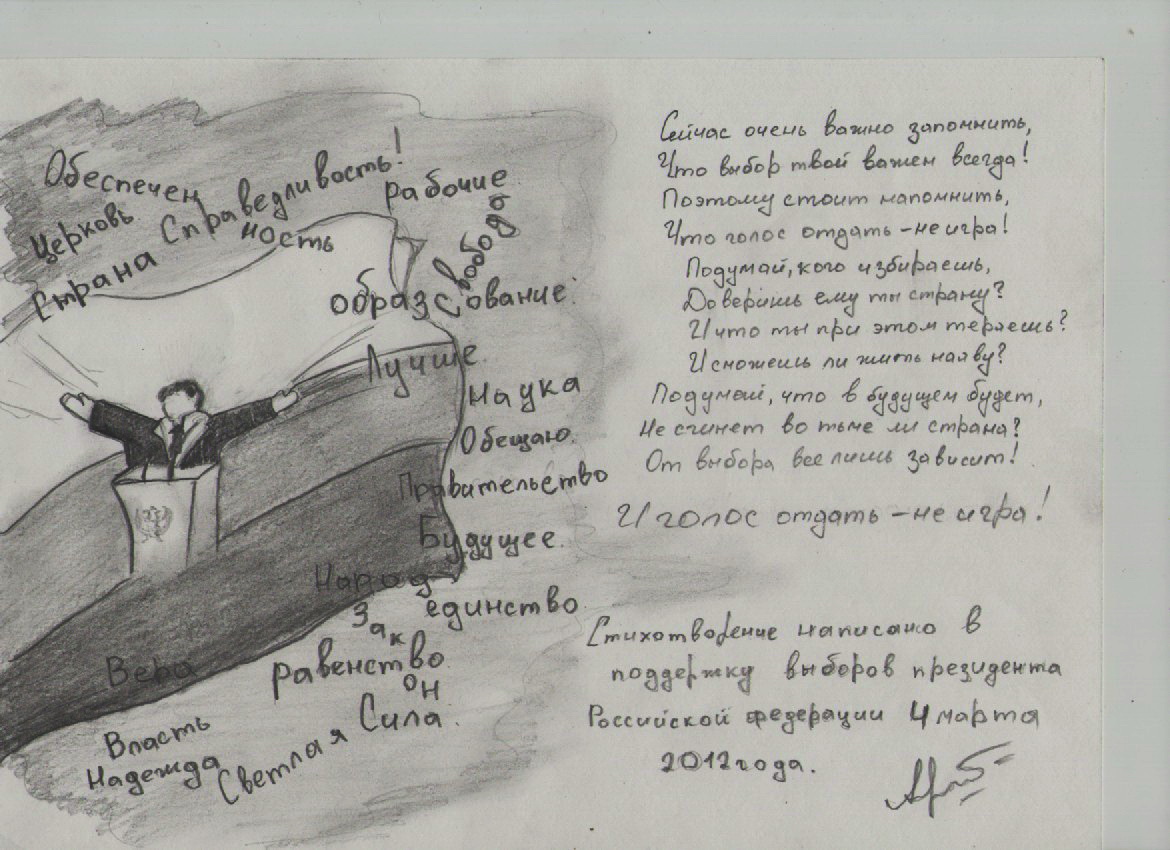 Обеспечен
ность
Справедливость!
рабочие
Церковь
Страна
Свобода
образ ование
Лучше
Наука
Обещаю.
Правительство
Будущее.
Народ
единство
Закон
равенство
Вера
Сила.
Власть
Надежда
Светлая
Сейчас очень важно запомнить,
Что выбор твой важен всегда!
Поэтому стоит напомнить,
Что голос отдать – не игра!
Подумай, кого избираешь,
Доверишь ему ты страну?
И что ты при этом теряешь?
И сможешь ли жить наяву?
Подумай, что в будущем будет,
Не сгинет во тьме ли страна?
От выбора все лишь зависит!
И голос отдать – не игра!
Стихотворение написано в
поддержку выборов президента
Российской федерации 4 марта
2012 года.